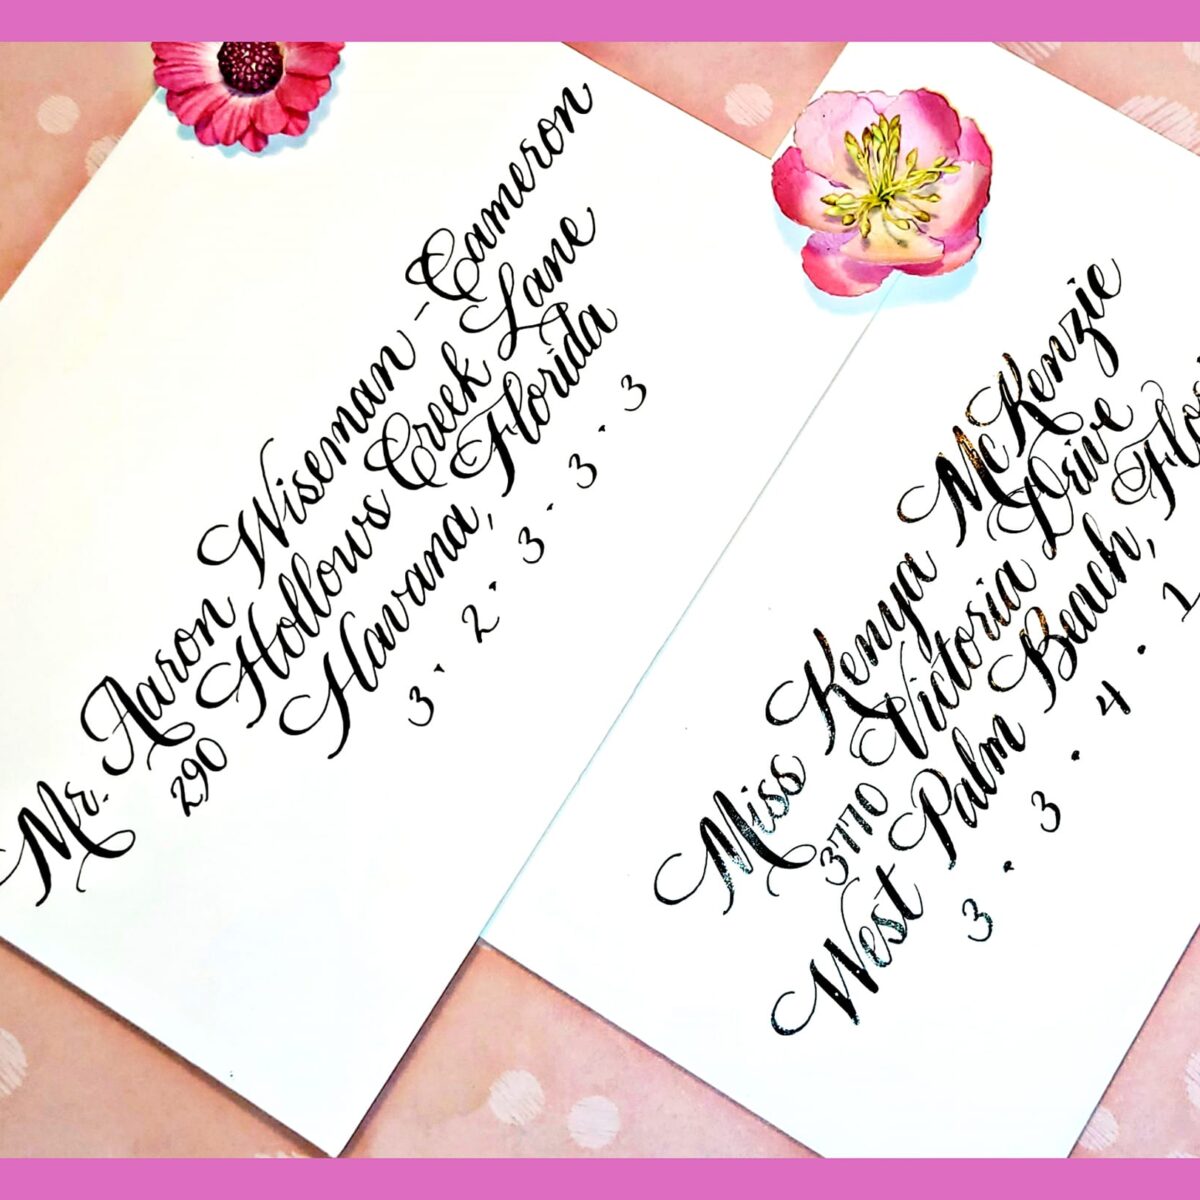 Mr. Aaron Wiseman-Cameron
290 Hollows Creek Lane
Havana, Florida
3 · 2 · 3 · 3 · 3
Miss Kenya McKenzie
3770 Victoria Drive
West Palm Beach,
3 · 3 · 4 · 1